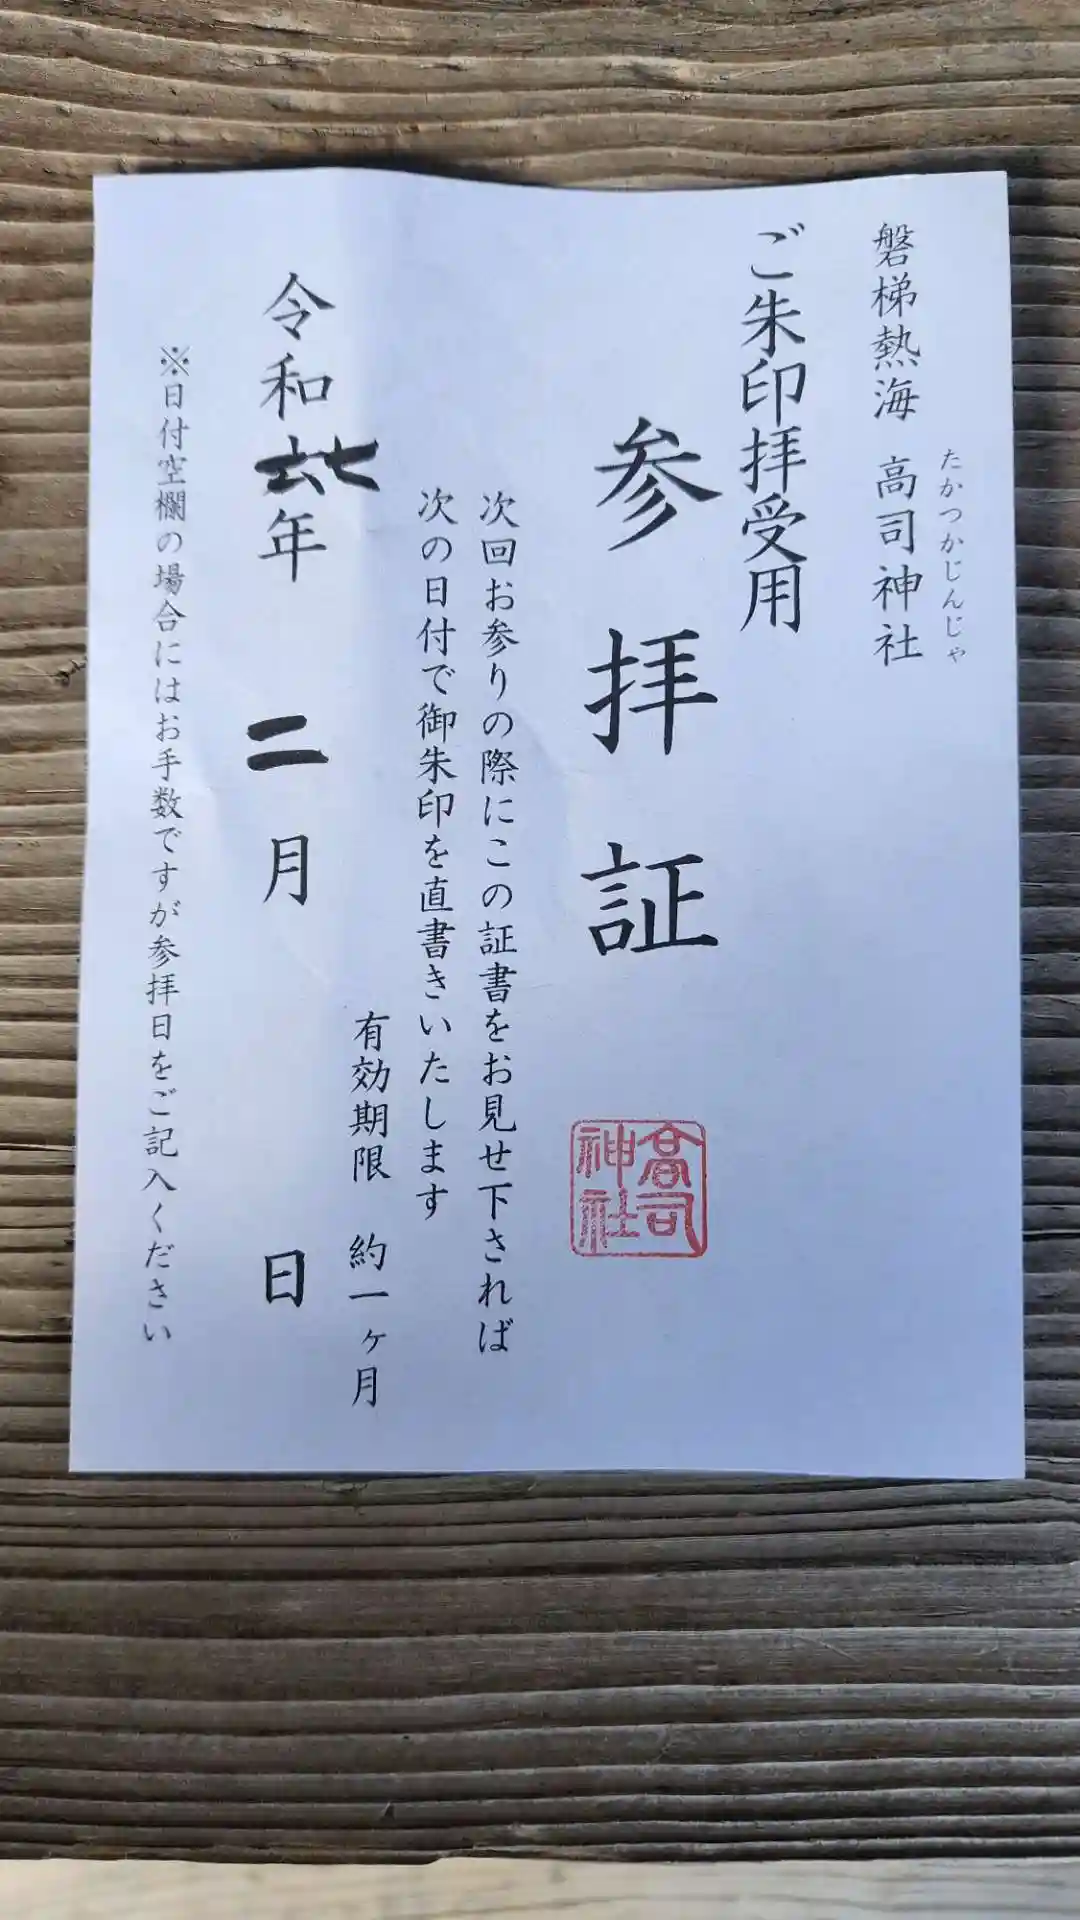 磐梯熱海 高司神社
たかつかじんじゃ
ご朱印拝受用
参拝証
高司神社
次回お参りの際にこの証書をお見せ下されば
次の日付で御朱印を直書きいたします
有効期限 約一ヶ月
令和七年 二月 日
※日付空欄の場合にはお手数ですが参拝日をご記入ください